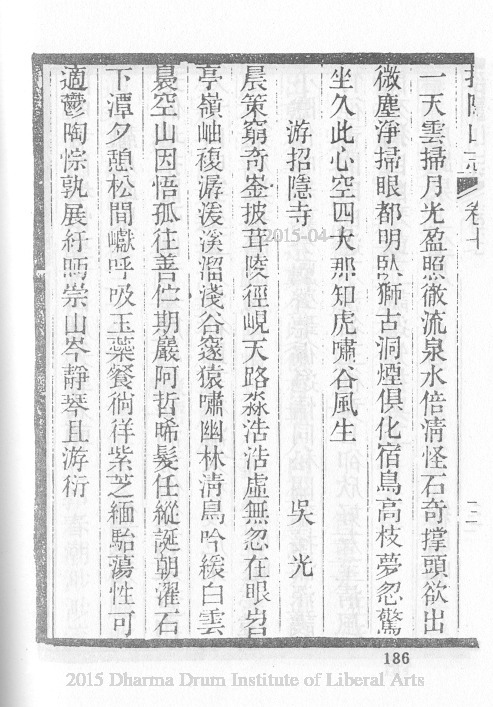 招隱山志 卷十 三
一天雲掃月光盈照徹流泉水倍清怪石奇撐頭欲出
微塵淨掃眼都明臥獅古洞煙俱化宿鳥高枝夢忽驚
坐久此心空四大那知虎嘯谷風生
游招隱寺 吳光
晨策窮奇崟披茸陵徑峴天路淼浩浩虛無忽在眼岧
亭嶺岫複潺湲溪溜淺谷窔猿嘯幽林清鳥吟緩白雲
裊空山因悟孤往善伫期嚴阿哲晞髮任縱誕朝濯石
下潭夕憩松間巘呼吸玉蘂餐徜徉紫芝緬駘蕩性可
適鬱陶悰孰展紆眄崇山岑靜琴且游衍
186
2015-04
2015 Dharma Drum Institute of Liberal Arts